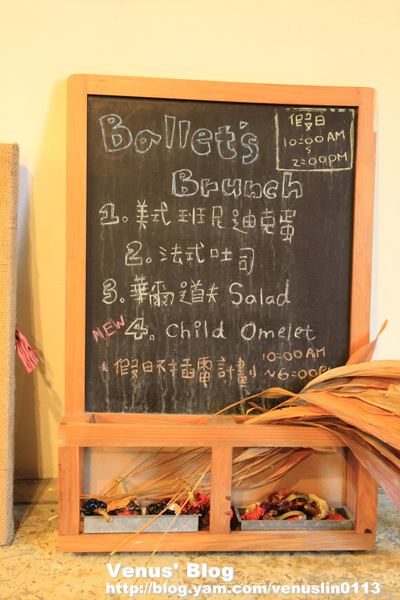 Ballet's
Brunch
假日
10:00AM
~
2:00PM
1. 美式班尼迪克蛋
2. 法式吐司
3. 華爾道夫 Salad
NEW
4. Child Omelet
*假日不插電計劃 10:00AM
~6:00PM
Venus' Blog
http://blog.yam.com/venuslin0113